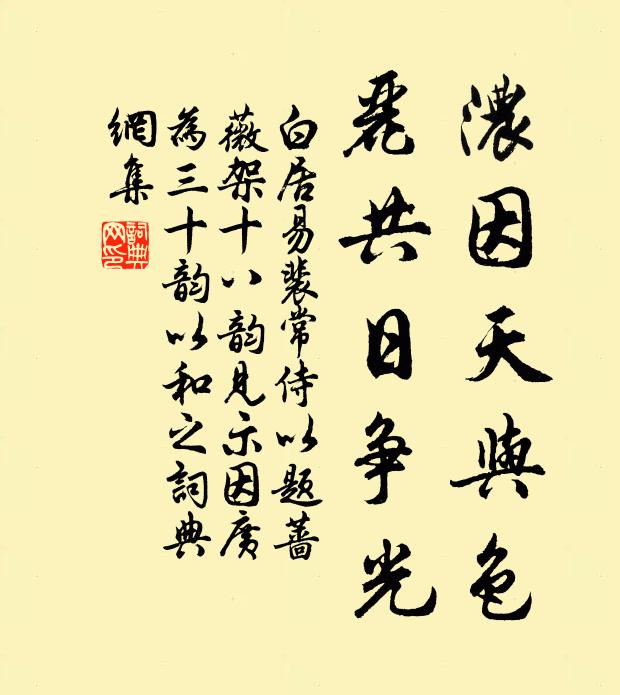 濃因天與色
麗共日争光
白居易裴常侍以題薔
薇架十八韵見示因廣
為三十韵以和之詞典
網集
詞典
网印